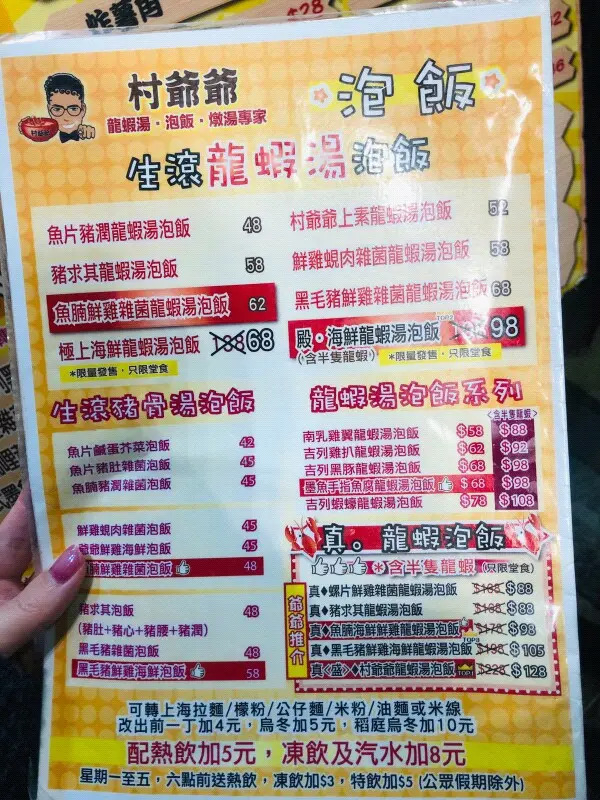 炸薯角
$28
村爺爺
龍蝦湯·泡飯·燉湯專家
泡飯
生滾龍蝦湯泡飯
魚片豬潤龍蝦湯泡飯 48
豬求其龍蝦湯泡飯 58
魚腩鮮雞雜菌龍蝦湯泡飯 62
極上海鮮龍蝦湯泡飯 68
*限量發售·只限堂食
村爺爺上素龍蝦湯泡飯 52
鮮雞蜆肉雜菌龍蝦湯泡飯 58
黑毛豬鮮雞雜菌龍蝦湯泡飯 68
殿·海鮮龍蝦湯泡飯 98
(含半隻龍蝦) *限量發售·只限堂食
生滾豬骨湯泡飯
魚片鹹蛋芥菜泡飯 42
魚片豬肚雜菌泡飯 45
魚腩豬潤雜菌泡飯 45
鮮雞蜆肉雜菌泡飯 45
爺鮮雞海鮮泡飯 45
鮮雞雜菌泡飯 48
豬求其泡飯 48
(豬肚+豬心+豬腰+豬潤)
黑毛豬雜菌泡飯 48
黑毛豬鮮雞海鮮泡飯 58
龍蝦湯泡飯系列
<含半隻龍蝦>
南乳雞翼龍蝦湯泡飯 $58 $88
吉列雞扒龍蝦湯泡飯 $62 $92
吉列黑豚龍蝦湯泡飯 $68 $98
墨魚手指魚腐龍蝦湯泡飯 $68 $98
吉列蝦蠔龍蝦湯泡飯 $78 $108
真。龍蝦泡飯
*含半隻龍蝦 (只限堂食)
爺爺推介
真♦螺片鮮雞雜菌龍蝦湯泡飯 $88
真♦豬求其龍蝦湯泡飯 $88
真♦魚腩海鮮鮮雞龍蝦湯泡飯 $98
真♦黑毛豬鮮雞海鮮龍蝦湯泡飯 $105
真<盛>♦村爺爺龍蝦湯泡飯 $128
可轉上海拉麵/檬粉/公仔麵/米粉/油麵或米線
改出前一丁加4元,烏冬加5元,稻庭烏冬加10元
配熱飲加5元,凍飲及汽水加8元
星期一至五,六點前送熱飲,凍飲加$3,特飲加$5 (公眾假期除外)